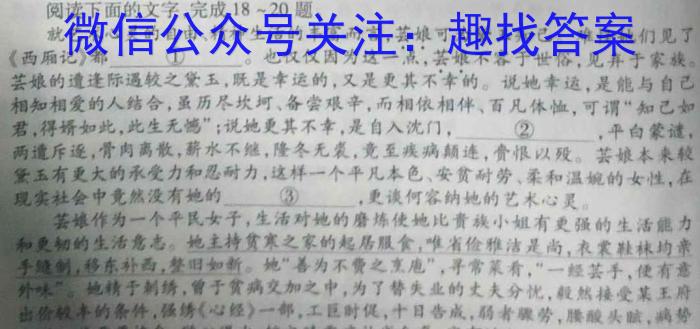 阅读下面的文字,完成18~20题
微信公众号关注:趣找答案
《西厢记》都 ① 。也仅仅因为这一点,芸娘不容于世俗,见弃于家族。
芸娘的遭逢际遇较之黛玉,既是幸运的,又是更其不幸的。说她幸运,是能与自己
相知相爱的人结合,虽历尽坎坷、备尝艰辛,而相依相伴、百凡体恤,可谓“知己如
君,得婿如此,此生无憾”;说她更其不幸,是自入沈门, ② ,平白蒙谴,
两遭斥逐,骨肉离散,薪水不继,隆冬无裘,竟至疾病颠连,赍恨以殁。芸娘本来较
黛玉有更大的承受力和忍耐力,这样一个平凡本色、安贫耐劳、柔和温婉的女性,在
现实社会中竟然没有她的 ③ ,更谈何容纳她的艺术心灵。
芸娘作为一个平民女子,生活对她的磨炼使她比贵族小姐有更强的生活能力
和更韧的生活意志。她主持贫寒之家的起居服食,唯省俭雅洁是尚,衣裳鞋袜均亲
手缝制,移东补西,整旧如新。她“善为不费之烹庖”,寻常菜肴,“一经芸手,便有意
外味”。她精于刺绣,曾于贫病交加之中,为了替失业的丈夫分忧,毅然接受某王府
出价较丰的条件,强绣《心经》一部,工巨时促,十日告成,弱者骤劳,腰酸头眩,病势